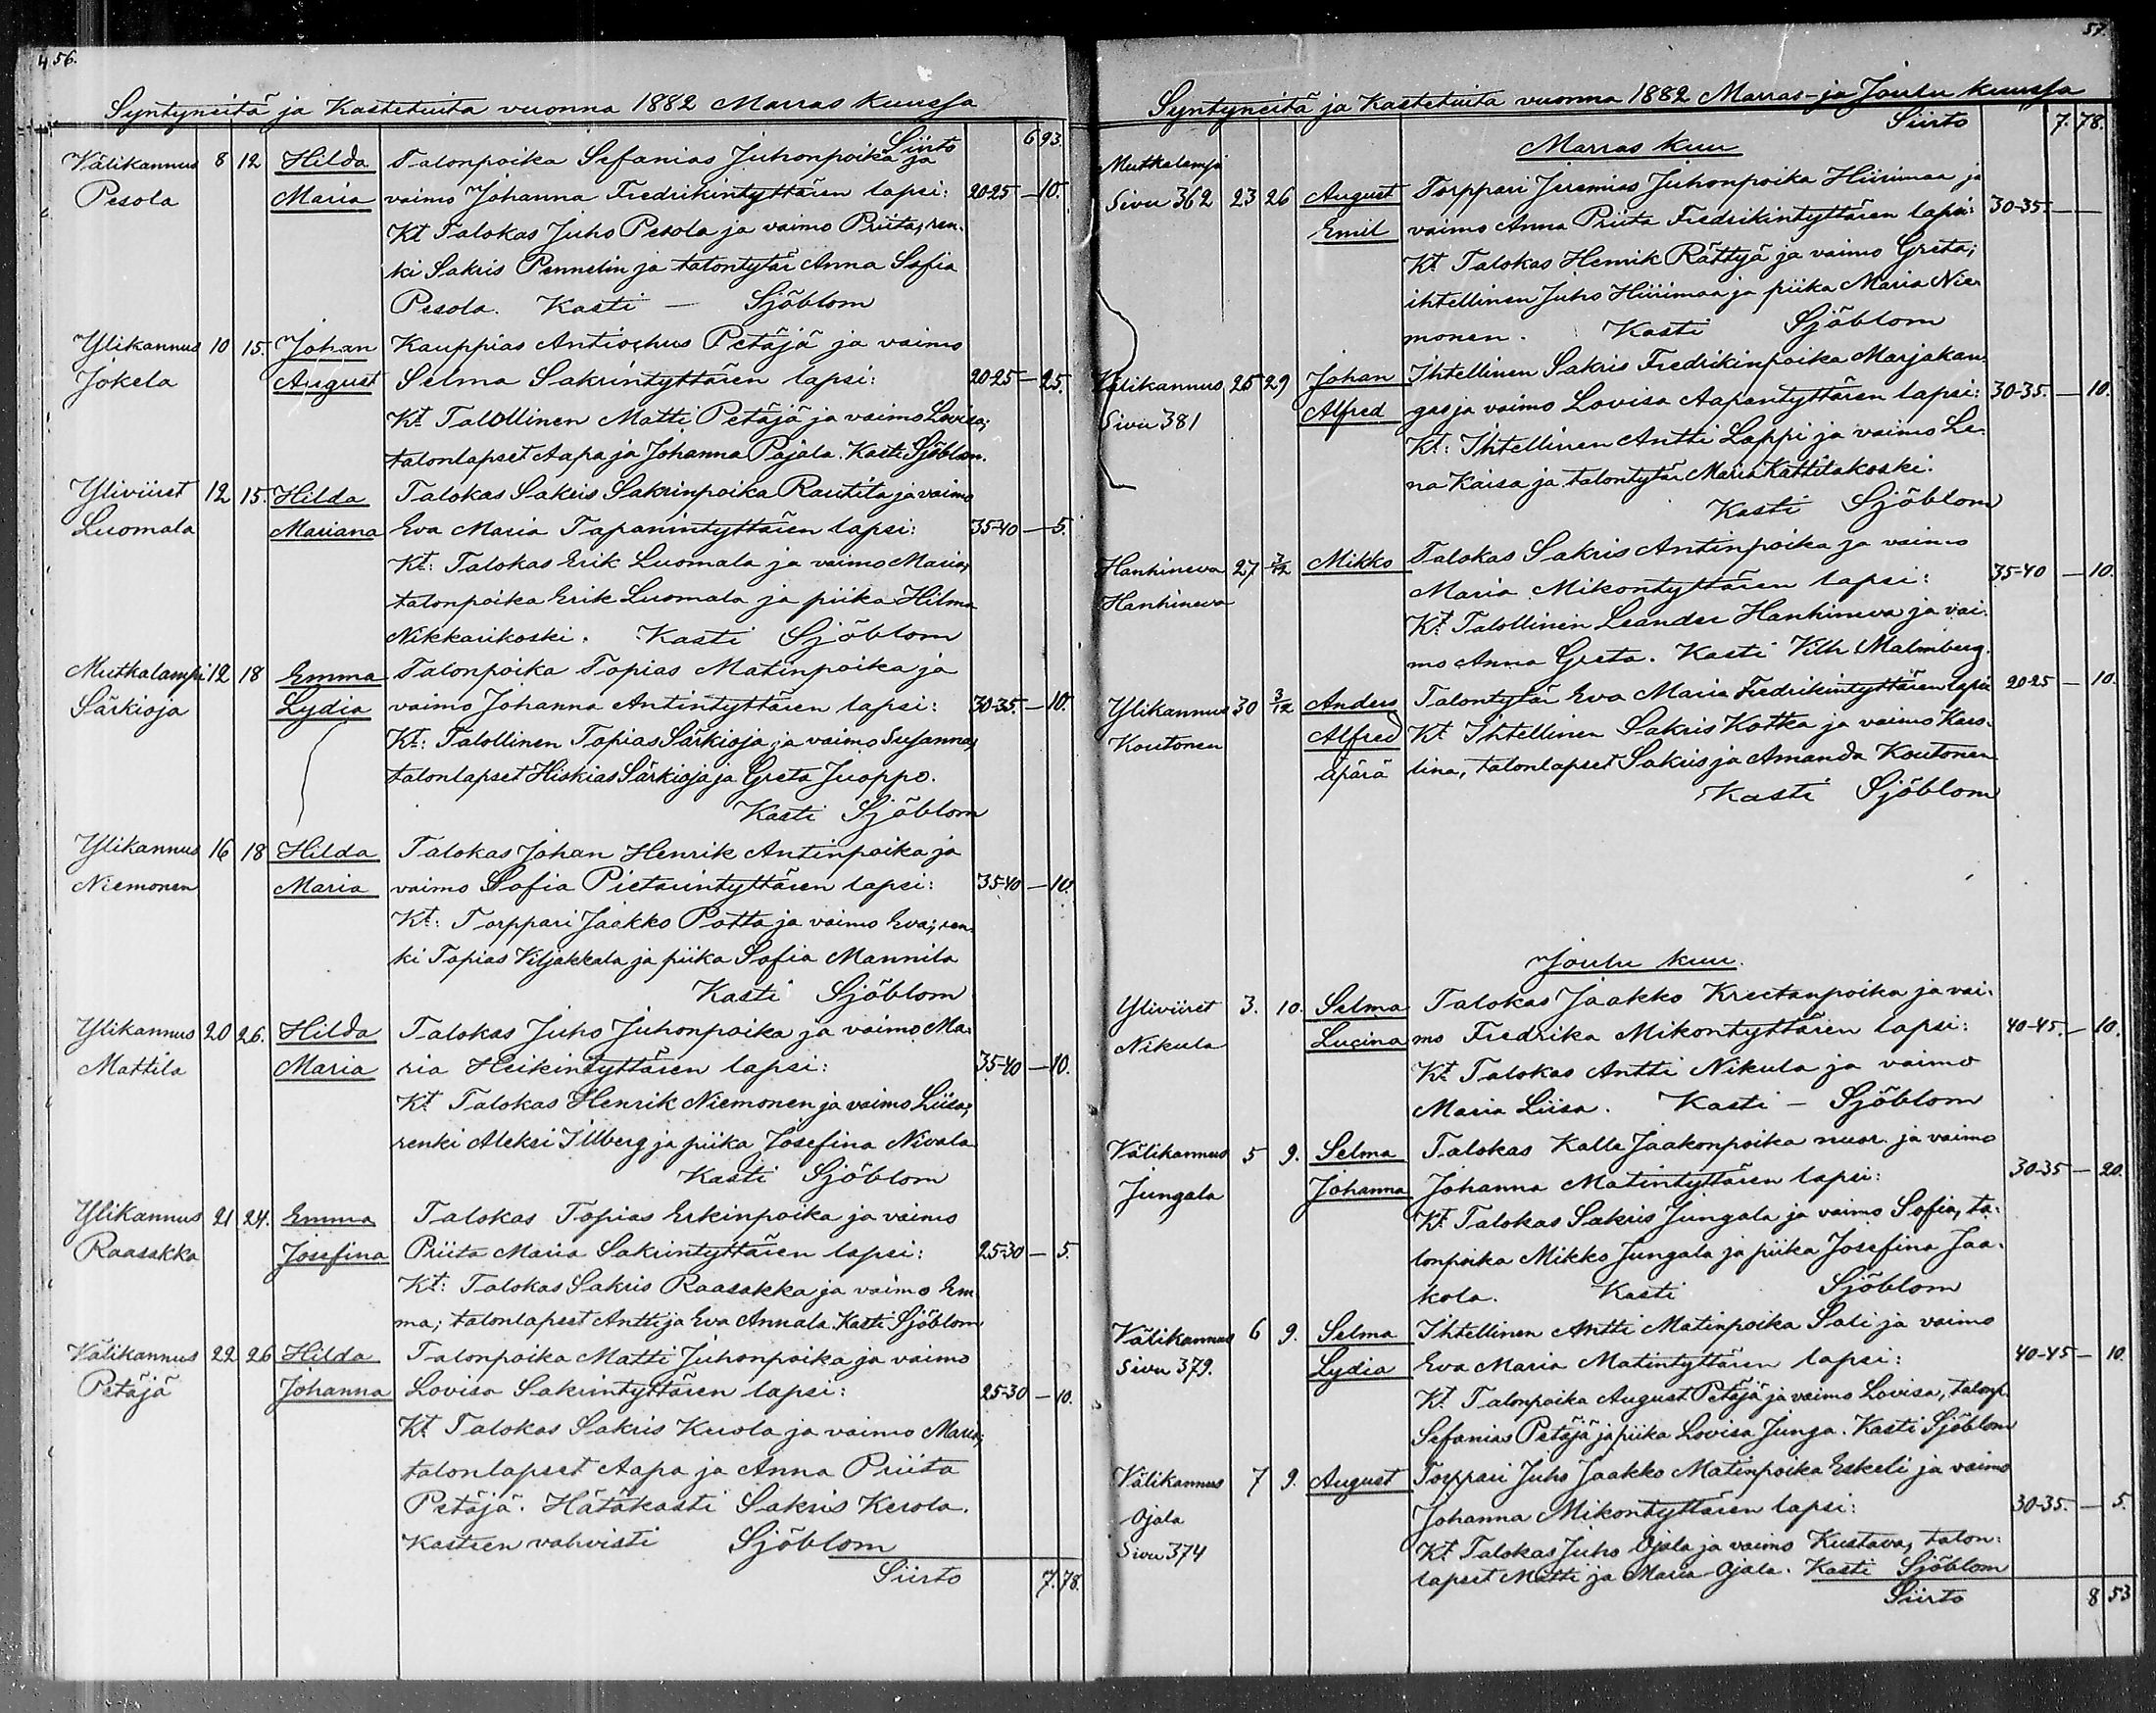 4 56.
Syntyneitä ja Kastetuita vuonna 1882 Marras kuussa
Siirto 6 93.
Välikannus 8 12 Hilda Talonpoika Sefanias Juhonpoika ja
Pesola Maria vaimo Johanna Fredrikintyttären lapsi: 20-25 — 10.
Kt Talokas Juho Pesola ja vaimo Priita, ren-
ki Sakris Pennelin ja talontytär Anna Sofia
Pesola. Kasti — Sjöblom
Ylikannus 10 15. Johan Kauppias Antiochus Petäjä ja vaimo
Jokela August Selma Sakrintyttären lapsi: 20-25 — 25.
Kt. Talollinen Matti Petäjä ja vaimo Lovisa;
talonlapset Aapa ja Johanna Pajala. Kasti Sjöblom.
Yliviiret 12 15. Hilda Talokas Sakris Sakrinpoika Rautila ja vaimo
Luomala Mariana Eva Maria Tapanintyttären lapsi: 35-40 — 5.
Kt: Talokas Erik Luomala ja vaimo Maria,
talonpoika Erik Luomala ja piika Hilma
Nikkarikoski. Kasti Sjöblom
Mutkalampi 12 18 Emma Talonpoika Topias Matinpoika ja
Särkioja Lydia vaimo Johanna Antintyttären lapsi: 30-35. — 10.
Kt: Talollinen Topias Särkioja ja vaimo Susanna,
talonlapset Hiskias Särkioja ja Greta Juoppo.
Kasti Sjöblom
Ylikannus 16 18 Hilda Talokas Johan Henrik Antinpoika ja
Niemonen Maria vaimo Sofia Pietarintyttären lapsi: 35-40 — 10.
Kt: Torppari Jaakko Potta ja vaimo Eva; ren-
ki Topias Viljakkala ja piika Sofia Mannila
Kasti Sjöblom
Ylikannus 20 26. Hilda Talokas Juho Juhonpoika ja vaimo Ma-
Mattila Maria ria Heikintyttären lapsi: 35-40 — 10.
Kt Talokas Henrik Niemonen ja vaimo Liisa;
renki Aleksi Illberg ja piika Josefina Nivala
Kasti Sjöblom
Ylikannus 21 24. Emma Talokas Topias Erkinpoika ja vaimo
Raasakka Josefina Priita Maria Sakrintyttären lapsi: 25-30 — 5.
Kt: Talokas Sakris Raasakka ja vaimo Em-
ma; talonlapset Antti ja Eva Annala. Kasti Sjöblom
Välikannus 22 26 Hilda Talonpoika Matti Juhonpoika ja vaimo
Petäjä Johanna Lovisa Sakrintyttären lapsi: 25-30 — 10.
Kt Talokas Sakris Kerola ja vaimo Maria;
talonlapset Aapa ja Anna Priita
Petäjä. Hätäkasti Sakris Kerola.
Kasteen vahvisti Sjöblom
Siirto 7.78.
57.
Syntyneitä ja Kastetuita vuonna 1882 Marras- ja Joulu kuussa
Siirto 7. 78.
Marras kuu
Mutkalampi
Sivu 362 23 26 August Torppari Jeremias Juhonpoika Hiirimaa ja
Emil vaimo Anna Priita Fredrikintyttären lapsi: 30-35. — —
Kt Talokas Henrik Rättyä ja vaimo Greta;
ihtellinen Juho Hiirimaa ja piika Maria Nie-
monen. Kasti Sjöblom
Välikannus 25 29 Johan Ihtellinen Sakris Fredrikinpoika Marjakan-
Sivu 381 Alfred gas ja vaimo Lovisa Aapantyttären lapsi: 30-35. — 10.
Kt: Ihtellinen Antti Lappi ja vaimo Le-
na Kaisa ja talontytär Maria Kattilakoski.
Kasti Sjöblom
Hanhineva 27 3/12 Mikko Talokas Sakris Antinpoika ja vaimo
Hanhineva Maria Mikontyttären lapsi: 35-40 — 10.
Kt Talollinen Leander Hanhineva ja vai-
mo Anna Greta. Kasti Vilh Malmberg.
Ylikannus 30 3/12 Anders Talontytär Eva Maria Fredrikintyttären lapsi 20-25 — 10.
Koutonen Alfred Kt Ihtellinen Sakris Kotka ja vaimo Karo-
äpärä lina, talonlapset Sakris ja Amanda Koutonen
Kasti Sjöblom
Joulu kuu.
Yliviiret 3. 10. Selma Talokas Jaakko Krectanpoika ja vai-
Nikula Lucina mo Fredrika Mikontyttären lapsi: 40-45. — 10.
Kt Talokas Antti Nikula ja vaimo
Maria Liisa. Kasti — Sjöblom
Välikannus 5 9. Selma Talokas Kalle Jaakonpoika nuor. ja vaimo
Jungala Johanna Johanna Matintyttären lapsi: 30-35 — 20.
Kt. Talokas Sakris Jungala ja vaimo Sofia, ta-
lonpoika Mikko Jungala ja piika Josefina Jaa-
kola. Kasti Sjöblom
Välikannus 6 9. Selma Ihtellinen Antti Matinpoika Sali ja vaimo
Sivu 379. Lydia Eva Maria Matintyttären lapsi: 40-45 — 10.
Kt. Talonpoika August Petäjä ja vaimo Lovisa, talonp.
Sefanias Petäjä ja piika Lovisa Junga. Kasti Sjöblom
Välikannus 7 9. August Torppari Juho Jaakko Matinpoika Eskeli ja vaimo
Ojala Johanna Mikontyttären lapsi: 30-35. — 5.
Sivu 374 Kt Talokas Juho Ojala ja vaimo Kustava, talon-
lapset Matti ja Maria Ojala. Kasti Sjöblom
Siirto 8 53